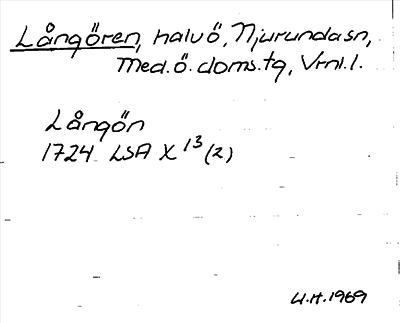 Långören, halvö, Njurundasn,
Med.ö.doms.tg, Vrnl.l.
Långön
1724 LSA X 13 (2)
U.H.1969